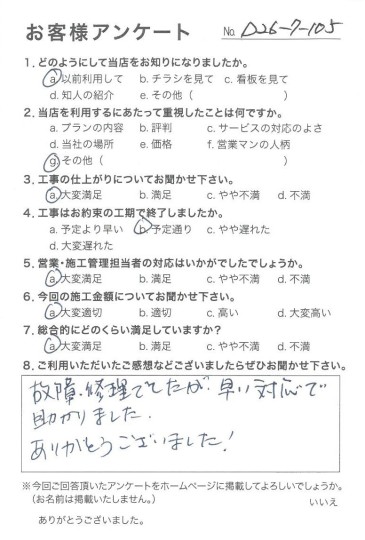 お客様アンケート No. D26-7-105
1. どのようにして当店をお知りになりましたか。
a. 以前利用して b. チラシを見て c. 看板を見て
d. 知人の紹介 e. その他（ ）
2. 当店を利用するにあたって重視したことは何ですか。
a. プランの内容 b. 評判 c. サービスの対応のよさ
d. 当社の場所 e. 価格 f. 営業マンの人柄
g. その他（ ）
3. 工事の仕上がりについてお聞かせ下さい。
a. 大変満足 b. 満足 c. やや不満 d. 不満
4. 工事はお約束の工期で終了しましたか。
a. 予定より早い b. 予定通り c. やや遅れた
d. 大変遅れた
5. 営業・施工管理担当者の対応はいかがでしたでしょうか。
a. 大変満足 b. 満足 c. やや不満 d. 不満
6. 今回の施工金額についてお聞かせ下さい。
a. 大変適切 b. 適切 c. 高い d. 大変高い
7. 総合的にどのくらい満足していますか?
a. 大変満足 b. 満足 c. やや不満 d. 不満
8. ご利用いただいたご感想などございましたらぜひお聞かせ下さい。
故障・修理でしたが、早い対応で
助かりました.
ありがとうございました!
※今回ご回答頂いたアンケートをホームページに掲載してよろしいでしょうか。
（お名前は掲載いたしません。） いいえ
ありがとうございました。